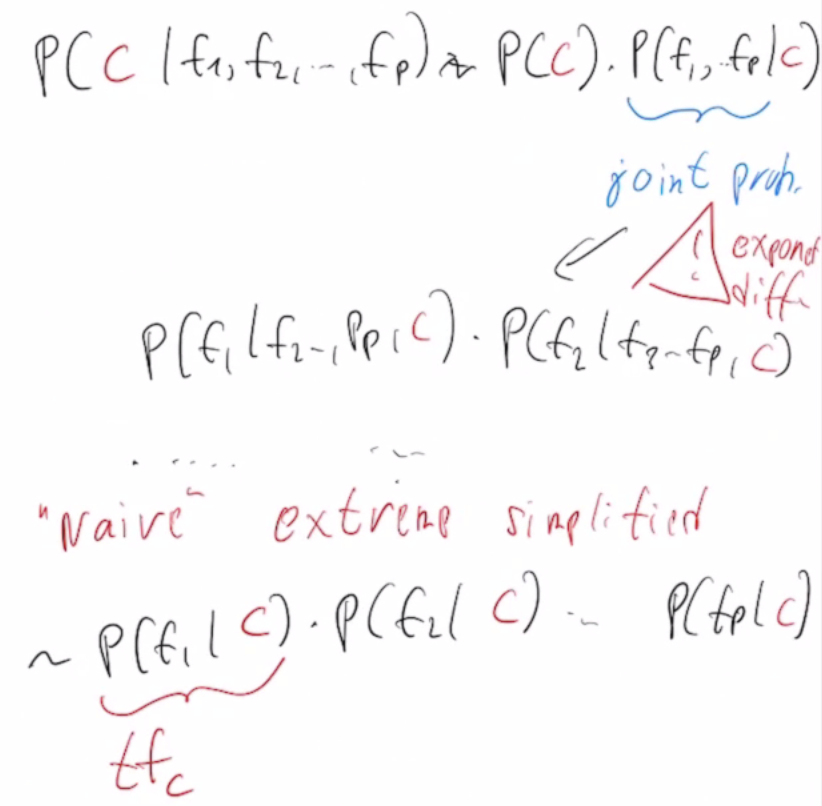 P(C | f1, f2, .., fp) ~ P(C) . P(f1, .. fp | C)
joint prob.
! expond
diff.
P(f1 | f2 -, Pp, C) . P(f2 | f3 - fp, C)
. ....
"Naive" extreme simplified
~ P(f1 | C) . P(f2 | C) .. P(fp | C)
tfc